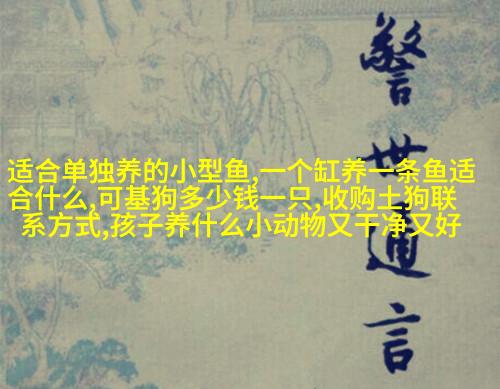 适合单独养的小型鱼,一个缸养一条鱼适
合什么,可基狗多少钱一只,收购土狗联
系方式,孩子养什么小动物又干净又好
警世通言